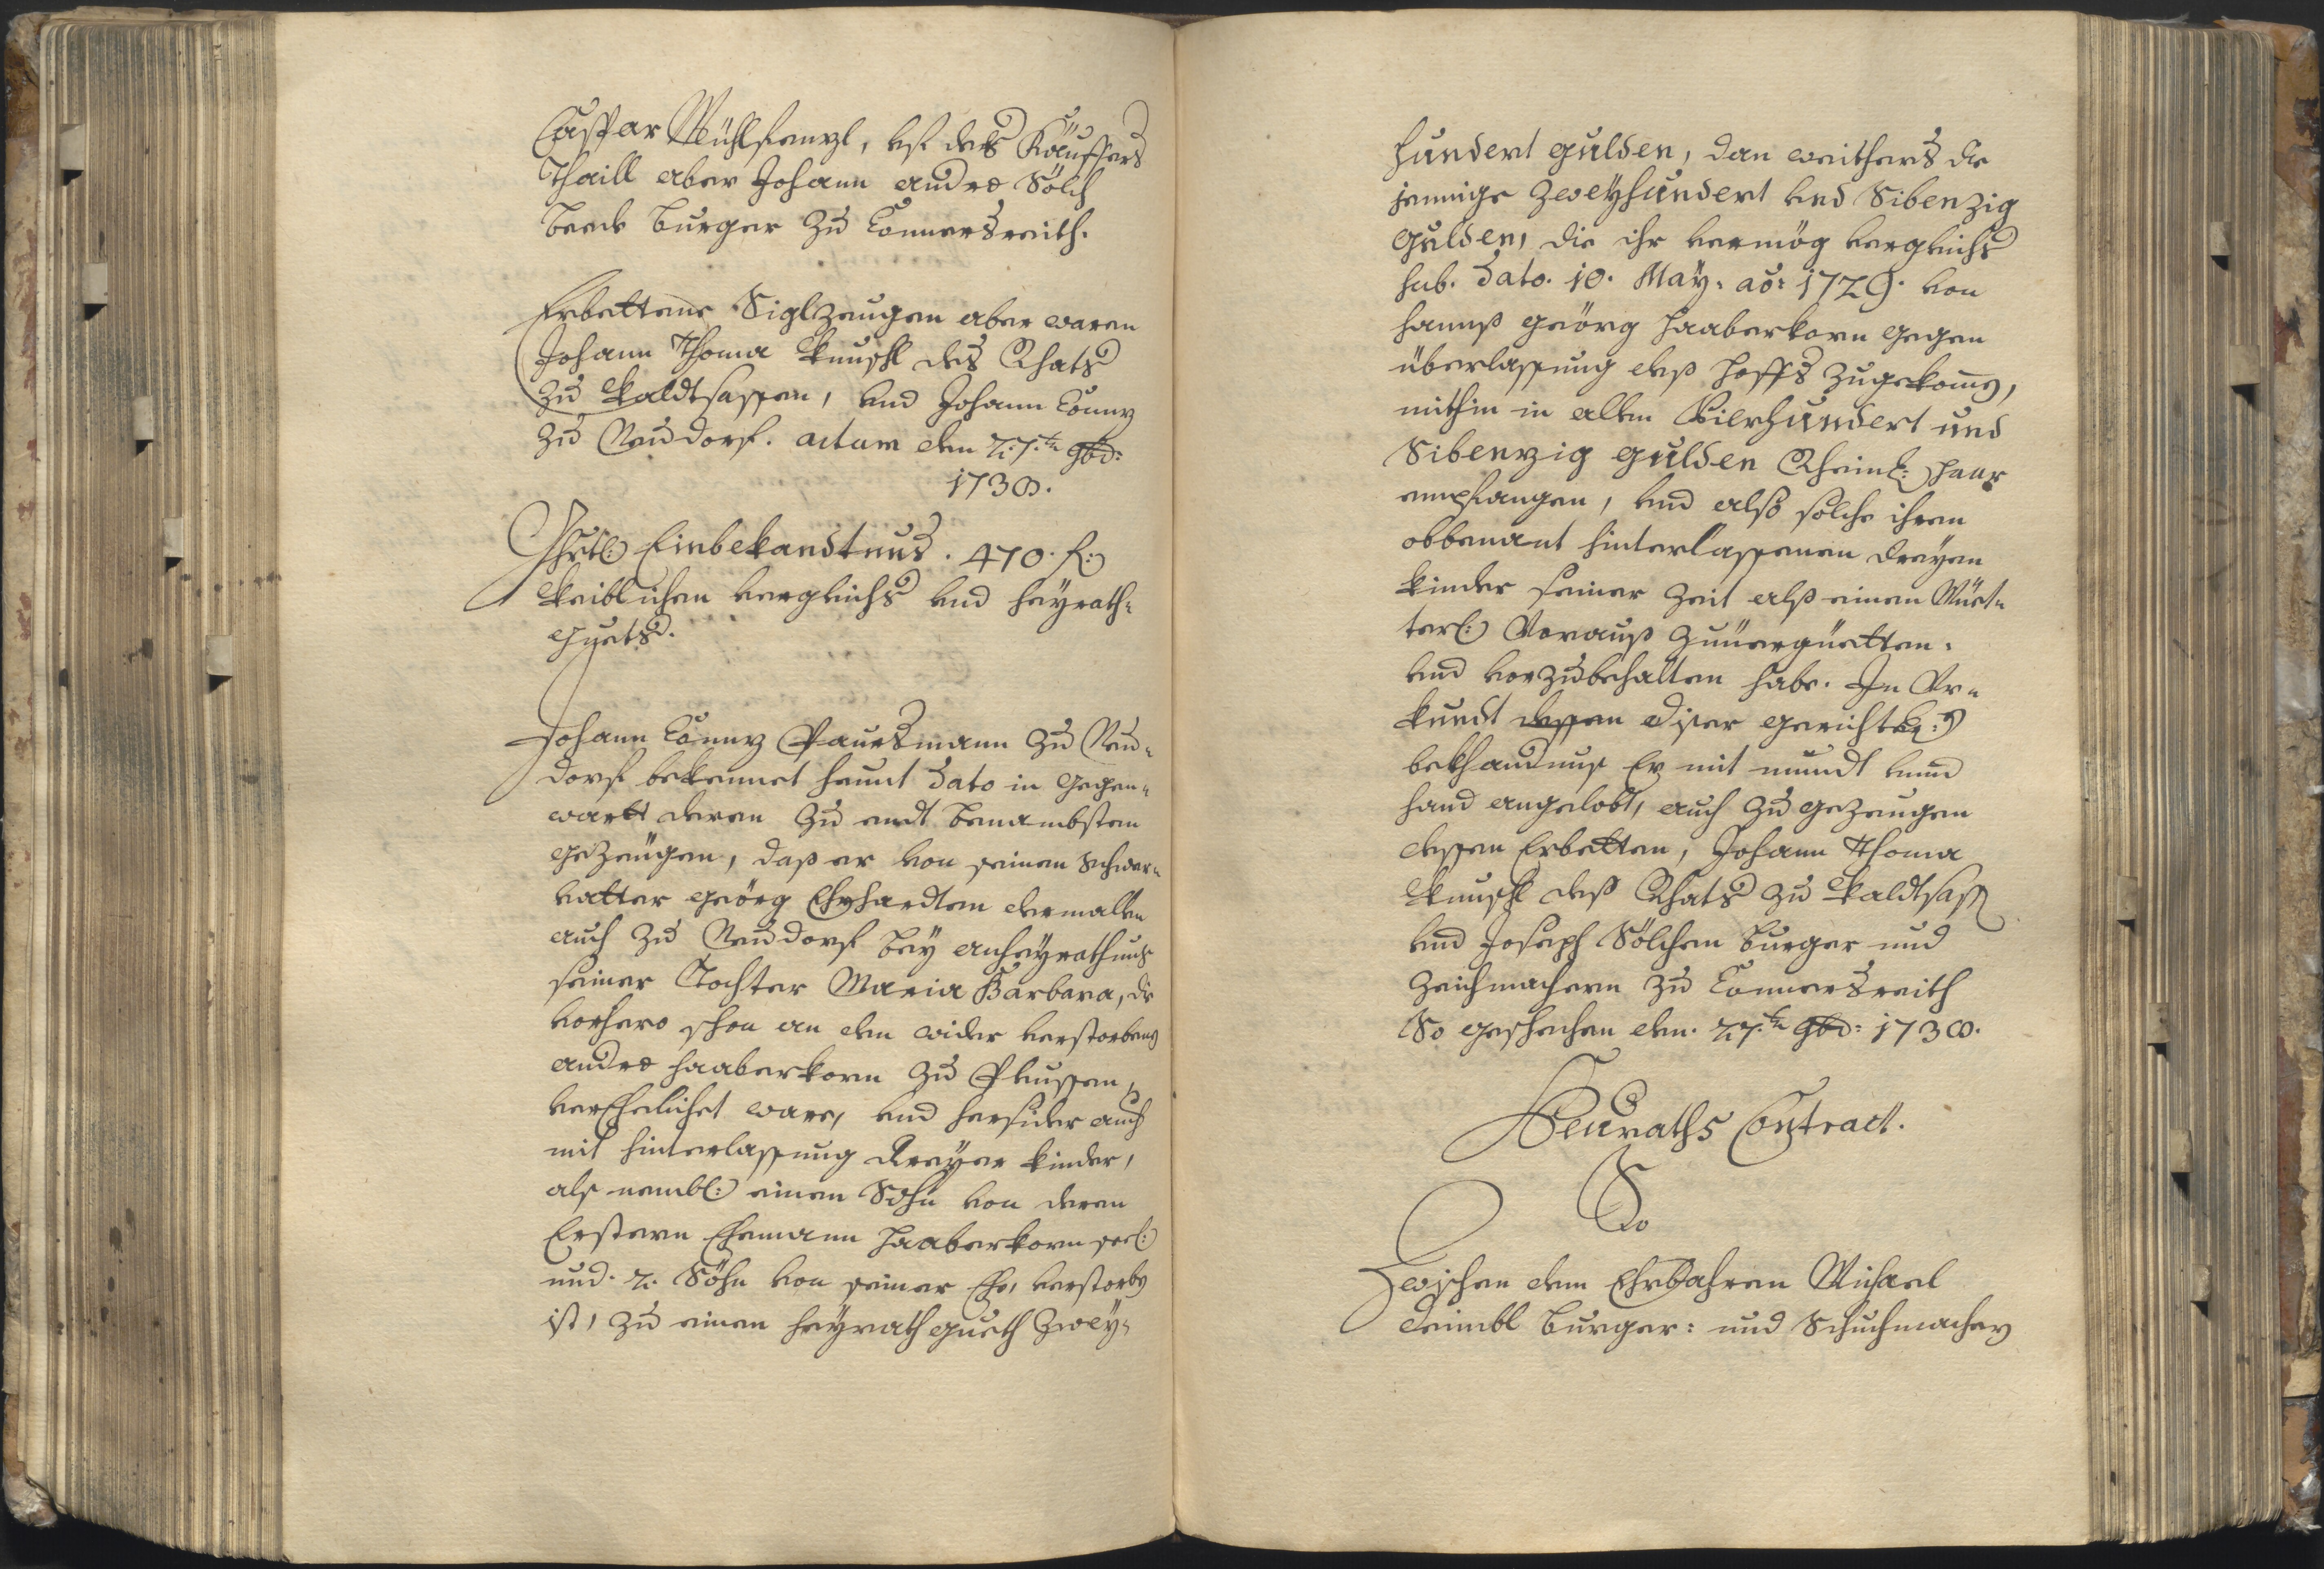 Caspar Mühlhenzl, uf des Käuffers
Thaill aber Johann Andre Sölch
beede Burger zu Connersreith.
Erbettene Siglzeugen aber waren
Johann Thoma des Rhats
zu Waldtsassen, und Johann Conny
zu Neudorf. actum den 27.ten 9bd:
1738.
Ghrtl: Einbekandtnus. 470. f:
Weiblichen vergleichs und heyrath-
guets.
Johann Conny Paursmann zu Neu-
dorf bekennet heunt Dato in Gegen-
wartt deren zu endt benambsten
gezeugen, daß er von seinen Schwer-
vatter Geörg Ehrhardten dermallen
auch zu Neudorf bey anheyrathung
seiner Tochter Maria Barbara, die
vorhero schon an den wider verstorbenen
Andre Haaberkorn zu Pleussen,
verEhelichet ware, und hersider auch
mit hinterlassung dreyer kinder,
als nembl: einen Sohn von deren
Erstern Ehemann Haaberkorn seel:
und 2. Söhn von seiner Ehe, verstorben
ist, zu einen heyrathgueth Zwey-
hundert gulden, dan weithers die
jennige Zweyhundert und Sibenzig
gulden, die ihr vermög vergleichs
sub. Dato. 10. May: ao: 1729. von
Hannß Geörg Haaberkorn gegen
überlassung deß Hoffs zugekomen,
mithin in allem Vierhundert und
Sibenzig gulden Rheinl: paar
empfangen, und alß solche ihren
obbenant hinterlassenen dreyen
kinder seiner Zeit alß einen Müet-
terl: Vorauß zuuergüetten,
und vorzubehalten habe. In Ur-
kundt dessen diser gerichtl:n
bekhandnus Er mit mundt unnd
hand angelobt, auch zu gezeugen
dessen Erbetten, Johann Thoma
deß Rhats zu Waldtsass
und Joseph Sölchen Burger und
Zeichmachern zu Connersreith
So geschechen den. 27.ten 9bd: 1738.
Heuraths Contract.
So
Zwischen dem Ehrbahren Michael
Deimbl Burger: und Schuchmachern